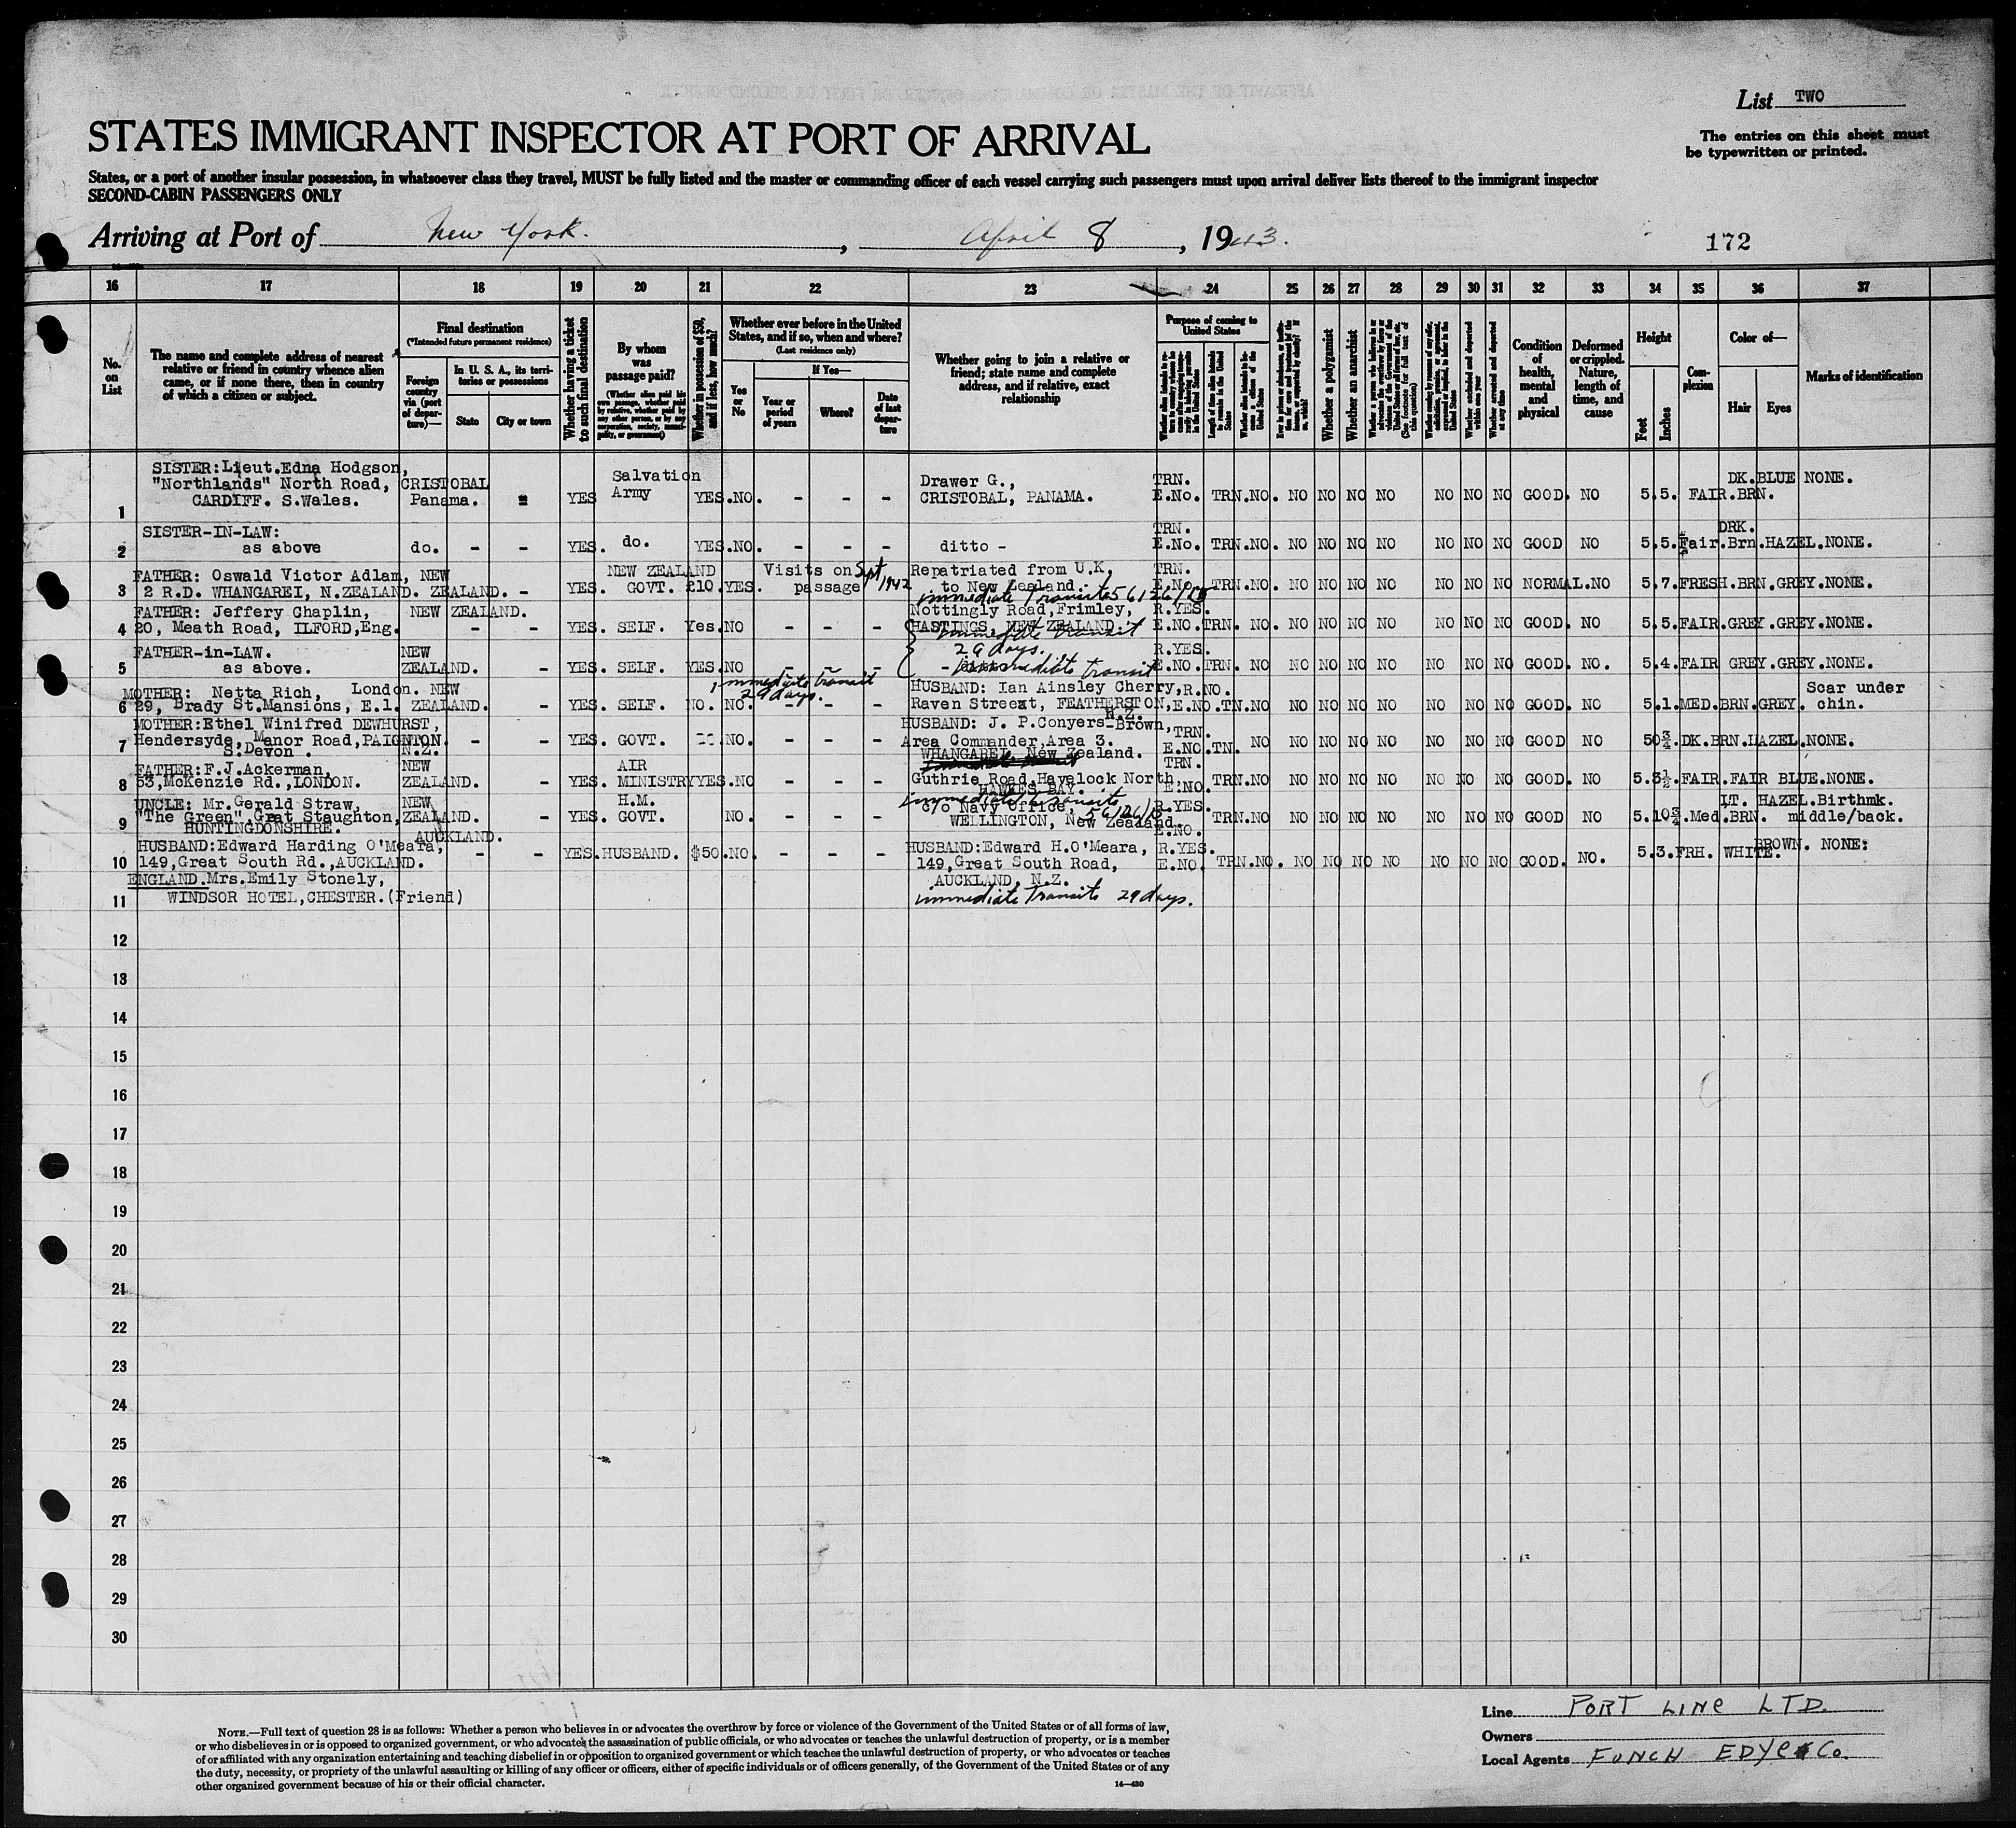 List TWO
STATES IMMIGRANT INSPECTOR AT PORT OF ARRIVAL
The entries on this sheet must
be typewritten or printed.
States, or a port of another insular possession, in whatsoever class they travel, MUST be fully listed and the master or commanding officer of each vessel carrying such passengers must upon arrival deliver lists thereof to the immigrant inspector
SECOND-CABIN PASSENGERS ONLY
Arriving at Port of New York. , April 8 , 1943.
172
16 17 18 19 20 21 22 23 24 25 26 27 28 29 30 31 32 33 34 35 36 37
No. on List
The name and complete address of nearest
relative or friend in country whence alien
came, or if none there, then in country
of which a citizen or subject.
Final destination
(*Intended future permanent residence)
Foreign country via (port of departure)—
In U. S. A., its territories or possessions
State
City or town
Whether having a ticket to such final destination
By whom was passage paid?
(Whether alien paid his own passage, whether paid by relative, whether paid by any other person, or by any corporation, society, municipality, or government)
Whether in possession of $50, and if less, how much?
Whether ever before in the United
States, and if so, when and where?
(Last residence only)
Yes or No
If Yes—
Year or period of years
Where?
Date of last departure
Whether going to join a relative or
friend; state name and complete
address, and if relative, exact
relationship
Purpose of coming to United States
Length of time alien intends to remain in the United States
Whether alien intends to become a citizen of the United States
Whether a polygamist
Whether an anarchist
(See footnote for full text of this question)
Whether arrested and deported at any time
Condition of health, mental and physical
Deformed or crippled. Nature, length of time, and cause
Height
Feet
Inches
Complexion
Color of—
Hair
Eyes
Marks of identification
1 SISTER: Lieut. Edna Hodgson,
"Northlands" North Road,
CARDIFF. S.Wales.
CRISTOBAL
Panama. YES Salvation Army YES. NO. - - - Drawer G.,
CRISTOBAL, PANAMA. TRN.
E.No. TRN. NO. NO NO NO NO NO NO NO GOOD. NO 5.5. FAIR. BRN. DK. BLUE NONE.
2 SISTER-IN-LAW:
as above do. - - YES. do. YES. NO. - - - ditto - TRN.
E.No. TRN. NO. NO NO NO NO NO NO NO GOOD NO 5.5. Fair. DRK. Brn. HAZEL. NONE.
3 FATHER: Oswald Victor Adlam,
2 R.D. WHANGAREI, N.ZEALAND. NEW
ZEALAND. - YES. NEW ZEALAND
GOVT. £10. YES. Visits on
passage Sept 1942 Repatriated from U.K,
to New Zealand. TRN.
E.No. TRN. NO. NO NO NO NO NO NO NO NORMAL. NO 5.7. FRESH. BRN. GREY. NONE.
immediate Transit 56126/
4 FATHER: Jeffery Chaplin,
20, Meath Road, ILFORD, Eng. NEW ZEALAND. - - YES. SELF. Yes. NO - - - Nottingly Road, Frimley,
HASTINGS, NEW ZEALAND. R.YES.
E.NO. TRN. NO. NO NO NO NO NO NO NO GOOD. NO 5.5. FAIR. GREY. GREY. NONE.
immediate transit
29 days.
5 FATHER-in-LAW.
as above. NEW
ZEALAND. - YES. SELF. YES. NO - - - R.YES.
E.NO. TRN. NO NO NO NO NO NO NO NO GOOD. NO. 5.4. FAIR GREY. GREY. NONE.
immediate transit
immediate transit
29 days.
6 MOTHER: Netta Rich, London.
29, Brady St. Mansions, E.1. NEW
ZEALAND. - YES. SELF. NO. NO. - - - HUSBAND: Ian Ainsley Cherry,
Raven Street, FEATHERSTON, N.Z. R.NO.
E.NO. TN. NO. NO NO NO NO NO NO NO GOOD. NO 5.1. MED. BRN. GREY. Scar under
chin.
7 MOTHER: Ethel Winifred DEWHURST,
Hendersyde, Manor Road, PAIGNTON.
S. Devon. N.Z. - - YES. GOVT. NO. - - - HUSBAND: J. P. Conyers-Brown,
Area Commander, Area 3.
WHANGAREI, New Zealand. TRN.
E.NO. TN. NO NO NO NO NO NO NO NO GOOD NO 50¾. DK. BRN. HAZEL. NONE.
8 FATHER: F.J. Ackerman,
53, McKenzie Rd., LONDON. NEW
ZEALAND. - YES. AIR
MINISTRY YES. NO - - - Guthrie Road, Havelock North,
HAWKES BAY. TRN.
E.NO. TRN. NO NO NO NO NO NO NO NO GOOD. NO 5.3½. FAIR. FAIR BLUE. NONE.
immediate transit 56126/
9 UNCLE: Mr. Gerald Straw,
"The Green", Great Staughton,
HUNTINGDONSHIRE. NEW
ZEALAND. - YES. H.M.
GOVT. NO. - - - c/o Navy Office,
WELLINGTON, New Zealand. R.YES.
E.NO. TRN. NO NO NO NO NO NO NO NO GOOD NO 5.10¾. Med. LT. BRN. HAZEL. Birthmk.
middle/back.
10 HUSBAND: Edward Harding O'Meara,
149, Great South Rd., AUCKLAND. AUCKLAND. - - YES. HUSBAND. $50. NO. - - - HUSBAND: Edward H. O'Meara,
149, Great South Road,
AUCKLAND, N.Z. R.YES.
E.NO. TRN. NO. NO NO NO NO NO NO NO GOOD. NO. 5.3. FRH. WHITE. BROWN. NONE:
ENGLAND. Mrs. Emily Stonely,
11 WINDSOR HOTEL, CHESTER. (Friend)
immediate Transit 29 days.
12
13
14
15
16
17
18
19
20
21
22
23
24
25
26
27
28
29
30
Line PORT LINE LTD.
Owners
Local Agents FUNCH EDYE & Co.
NOTE.—Full text of question 28 is as follows: Whether a person who believes in or advocates the overthrow by force or violence of the Government of the United States or of all forms of law,
or who disbelieves in or is opposed to organized government, or who advocates the assassination of public officials, or who advocates or teaches the unlawful destruction of property, or is a member
of or affiliated with any organization entertaining and teaching disbelief in or opposition to organized government or which teaches the unlawful destruction of property, or who advocates or teaches
the duty, necessity, or propriety of the unlawful assaulting or killing of any officer or officers, either of specific individuals or of officers generally, of the Government of the United States or of any
other organized government because of his or their official character.
14—430